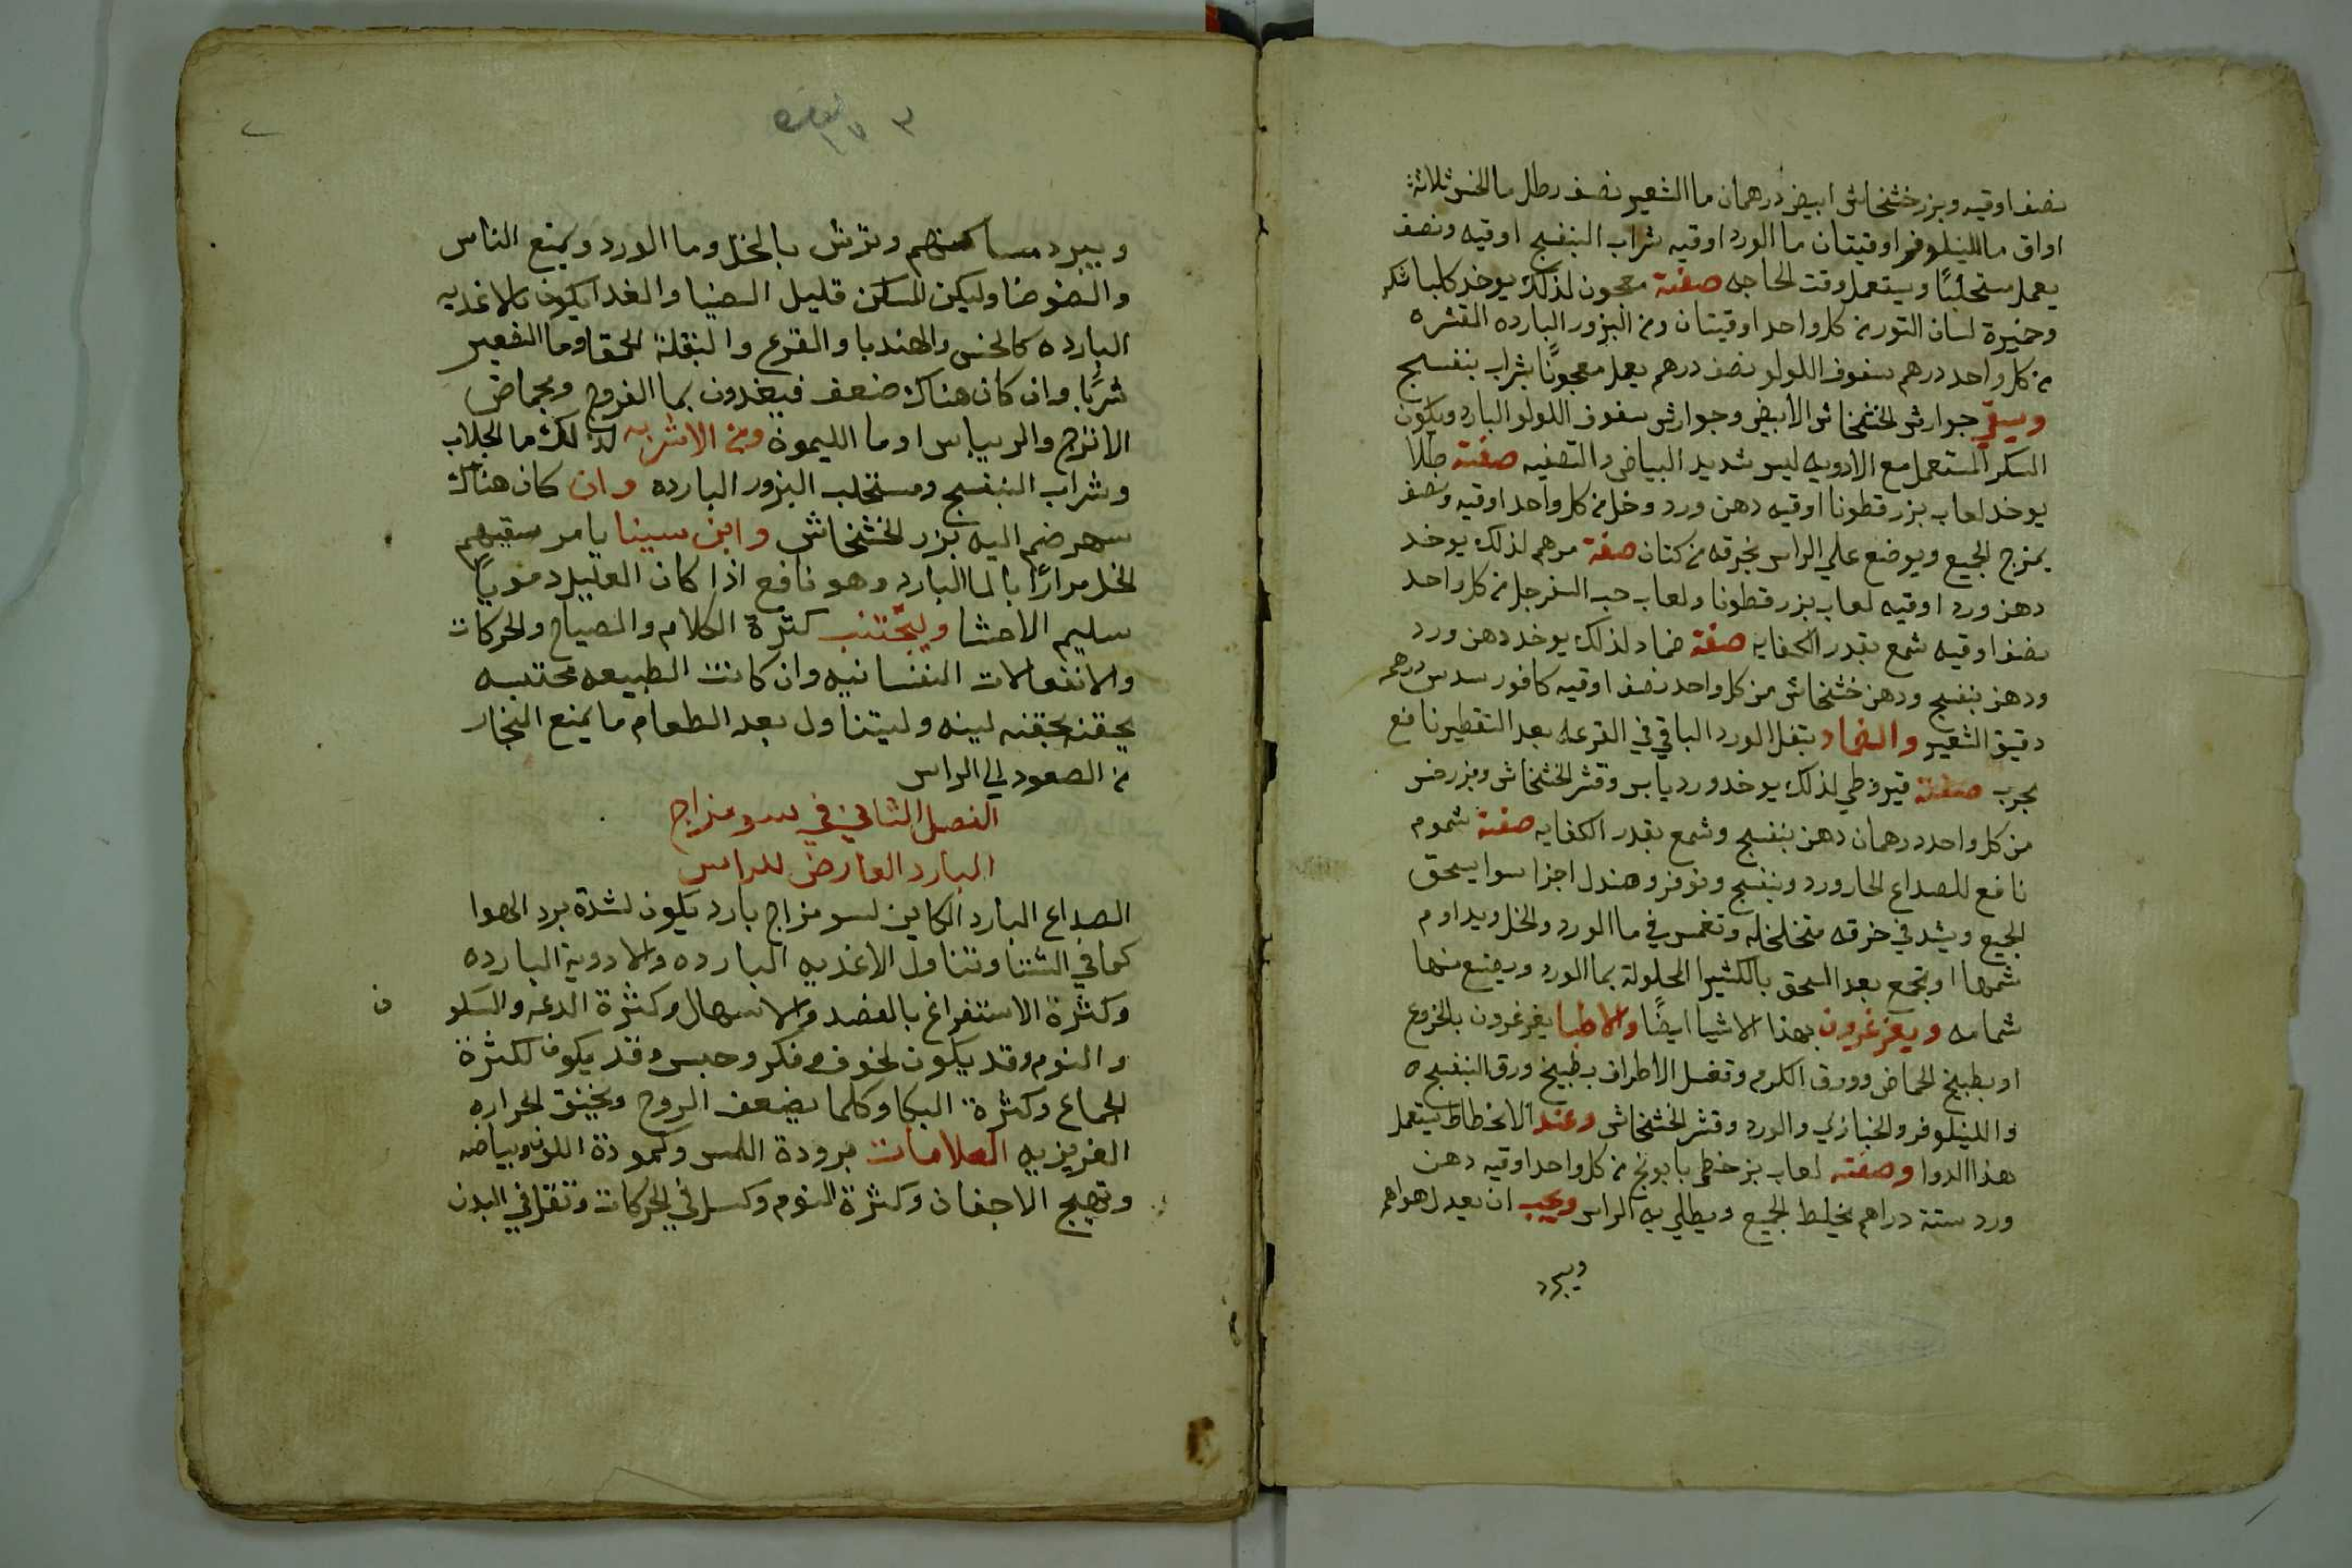 نصف اوقيه وبزر خشخاش ابيض درهمان ما الشعير نصف رطل ما الخس ثلاثة
اواق ما اللينلوفر اوقيتان ما الورد اوقيه شراب البنفسج اوقيه ونصف
يعمل مستحلبًا ويستعمل وقت الحاجه صفة معجون لذلك يوخد كلبا شكر
وخميرة لسان التور من كل واحد اوقيتان ومن البزور البارده المقشره
من كل واحد درهم سفوف اللولو نصف درهم يعمل معجونًا بشراب بنفسج
جوارش الخشخاش الابيض وجوارش سفوف اللولو البارد ويكون
السكر المستعمل مع الادويه ليس شديد البياض والتصفيه صفة طلا
يوخد لعاب بزر قطونا اوقيه دهن ورد وخل من كل واحد اوقيه ونصف
يمزج الجميع ويوضع علي الراس بخرقه من كتان صفة مرهم لذلك يوخد
دهن ورد اوقيه لعاب بزر قطونا ولعاب حب السفرجل من كل واحد
نصف اوقيه شمع بقدر الكفايه صفة ضماد لذلك يوخد دهن ورد
ودهن بنفسج ودهن خشخاش من كل واحد نصف اوقيه كافور سدس درهم
دقيق الشعير والضماد بتفل الورد الباقي في القرعه بعد التقطير نافع
مجرب صفة قيروطي لذلك يوخد ورد يابس وقشر الخشخاش وبزر خس
من كل واحد درهمان دهن بنفسج وشمع بقدر الكفايه صفة شموم
نافع للصداع الحار ورد وبنفسج ونوفر وصندل اجزا سوا يسحق
الجميع ويشد في خرقه متخلخله وتغمس في ما الورد والخل ويداوم
شمها او يجمع بعد السحق بالكثيرا المحلولة بما الورد ويصنع منها
شمامه ويغرغرون بهذا الاشيا ايضًا والاطبا يغرغرون بالخروع
او بطبيخ الحماض وورق الكرم وتغسل الاطراف بطبيخ ورق البنفسج ه
واللينلوفر والخبازي والورد وقشر الخشخاش وعند الانحطاط يستعمل
هذا الدوا وصفته لعاب بزر خطمي بابونج من كل واحد اوقيه دهن
ورد ستة دراهم يخلط الجميع ويطلي به الراس ويجب ان يعدل هواهم
ويبرد
ويبرد مساكنهم وترش بالخل وما الورد ويمنع الناس
والضوضا وليكن المسكن قليل الضيا والغدا يكون بالاغديه
البارده كالخس والهندبا والقرع والبقلة الحمقا وما الشعير
شربًا وان كان هناك ضعف فيغدون بما الفروج وبحماض
الاترج والريباس او ما الليمون ومن الاشربه لذلك ما الجلاب
وشراب البنفسج ومستحلب البزور البارده وان كان هناك
سهر ضم اليه بزر الخشخاش وابن سينا يامر سقيهم
الخل مرارًا بالما البارد وهو نافع اذا كان العليل دمويًا
سليم الاحشا وليجتنب كثرة الكلام والصياح والحركات
والانفعالات النفسانيه وان كانت الطبيعه محتبسه
يحقن بحقنه لينه وليتناول بعد الطعام ما يمنع البخار
من الصعود الي الراس
الفصل الثاني في سو مزاج
البارد العارض للراس
الصداع البارد الكاين لسو مزاج بارد يكون لشدة برد الهوا
كما في الشتا وتناول الاغديه البارده والادوية البارده
وكثرة الاستفراغ بالفصد والاسهال وكثرة الدعه والسكو
ن
والنوم وقد يكون لخوف وفكر وحبس وقد يكون لكثرة
الجماع وكثرة البكا وكلما يضعف الروح ويخنق الحراره
الغريزيه العلامات برودة اللمس وكمودة اللون وبياضه
وتهيج الاجفان وكثرة النوم وكسل في الحركات وثقل في البدن